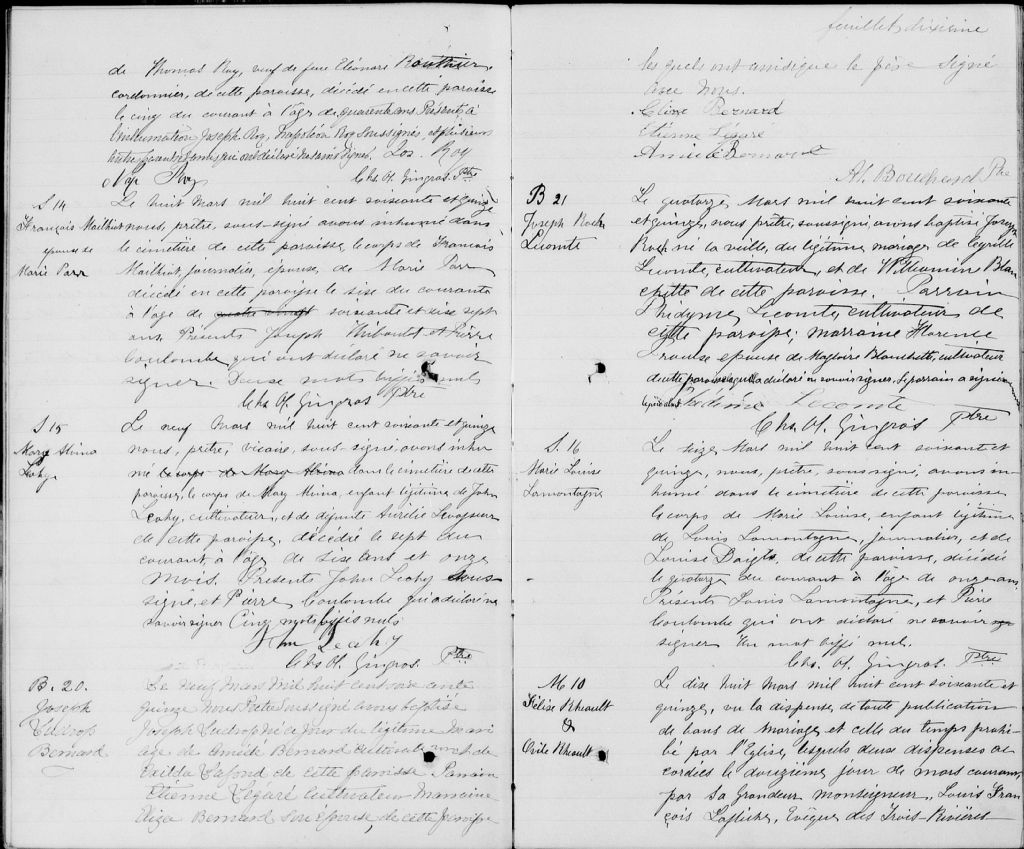 de Thomas Roy, veuf de feue Eléonore Bouthier,
cordonnier, de cette paroisse, décédé en cette paroisse
le cinq du courant à l'age de quarante ans. Présents à
l'inhumation Joseph Roy, Napoléon Roy soussignés et plusieurs
autres qui ont déclaré ne savoir signer. Jos. Roy
Nap Roy
Chs. H. Gingras. Ptre
S 14
François Mailhiot
épouse de
Marie Parr
Le huit Mars mil huit cent soixante et quinze
nous, prêtre, sous-signé avons inhumé dans
le cimetière de cette paroisse, le corps de François
Mailhiot, journalier, épouse, de Marie Parr
décédé en cette paroisse le sise du courant
à l'age de quatre vingt soixante et dise sept
ans. Présents Joseph Thibault et Pierre
Coulombe qui ont declaré ne savoir
signer. Deuse mots biffés nuls
Chs. H. Gingras Ptre
S 15
Mary Mina
Leahy
Le neuf Mars mil huit cent soixante et quinze
nous, prêtre, vicaire, sous-signé, avons inhu-
mé le corps de Mary Mina dans le cimetière de cette
paroisse, le corps de Mary Mina, enfant légitime de John
Leahy, cultivateur, et de défunte Aurélie Levasseur
de cette paroisse, décédée le sept du
courant, à l'age de sise ans et onze
mois. Présents John Leahy sous-
signé, et Pierre Coulombe qui a déclaré ne
savoir signer Cinq mots biffés nuls
John Leahy
Chs. H. Gingras. Ptre
B. 20.
Joseph
Bernard
Le neuf Mars Mil huit cent soixante
quinze nous Prêtre soussigné avons baptisé
Joseph né ce jour du légitime Mari
age de Aimé Bernard Cultivateur et de
Lafond de cette paroisse. Parrain
Etienne Légaré Cultivateur Marraine
Bernard son épouse, de cette paroisse
feuillet dixieme
lesquels ont ainsi que le père signé
avec nous.
Bernard
Etienne Légaré
Aimé Bernard
Bouchard Ptre
B 21
Joseph Roch
Lecomte
Le quatorze, Mars mil huit cent soixante
et quinze, nous prêtre, soussigné avons baptisé Joseph
Roch né la veille, du légitime mariage de
Lecomte, cultivateur, et de Wilhamine Blan
chette de cette paroisse. Parrain
Lecomte, cultivateur de
cette paroisse; marraine Florence
épouse de Magloire Blanchette, cultivateur
de cette paroisse laquelle a déclaré ne savoir signer, le parrain a signé
le père absent. Lecomte
Chs. H. Gingras Ptre
S. 16
Marie Louise
Lamontagne
Le seize Mars mil huit cent soixante et
quinze, nous, prêtre, soussigné, avons in-
humé dans le cimetière de cette paroisse
le corps de Marie Louise, enfant légitime
de Louis Lamontagne, journalier, et de
Louise Daigle, de cette paroisse, décédée
le quatorze du courant à l'age de onze ans
Présents Louis Lamontagne, et Pierre
Coulombe qui ont déclaré ne savoir
signer Un mot biffé nul.
Chs. H. Gingras. Ptre
M 10
Félise Rheault
&
Exile Rheault
Le dise huit Mars mil huit cent soixante et
quinze, vu la dispense de toute publication
de bans de mariage et celle du temps prohi-
bé par l'Eglise, lesquels deux dispenses ac
cordées le douzième jour de mars courant
par Sa Grandeur Monseigneur, Louis Fran
çois Laflèche, Evêque des Trois-Rivières